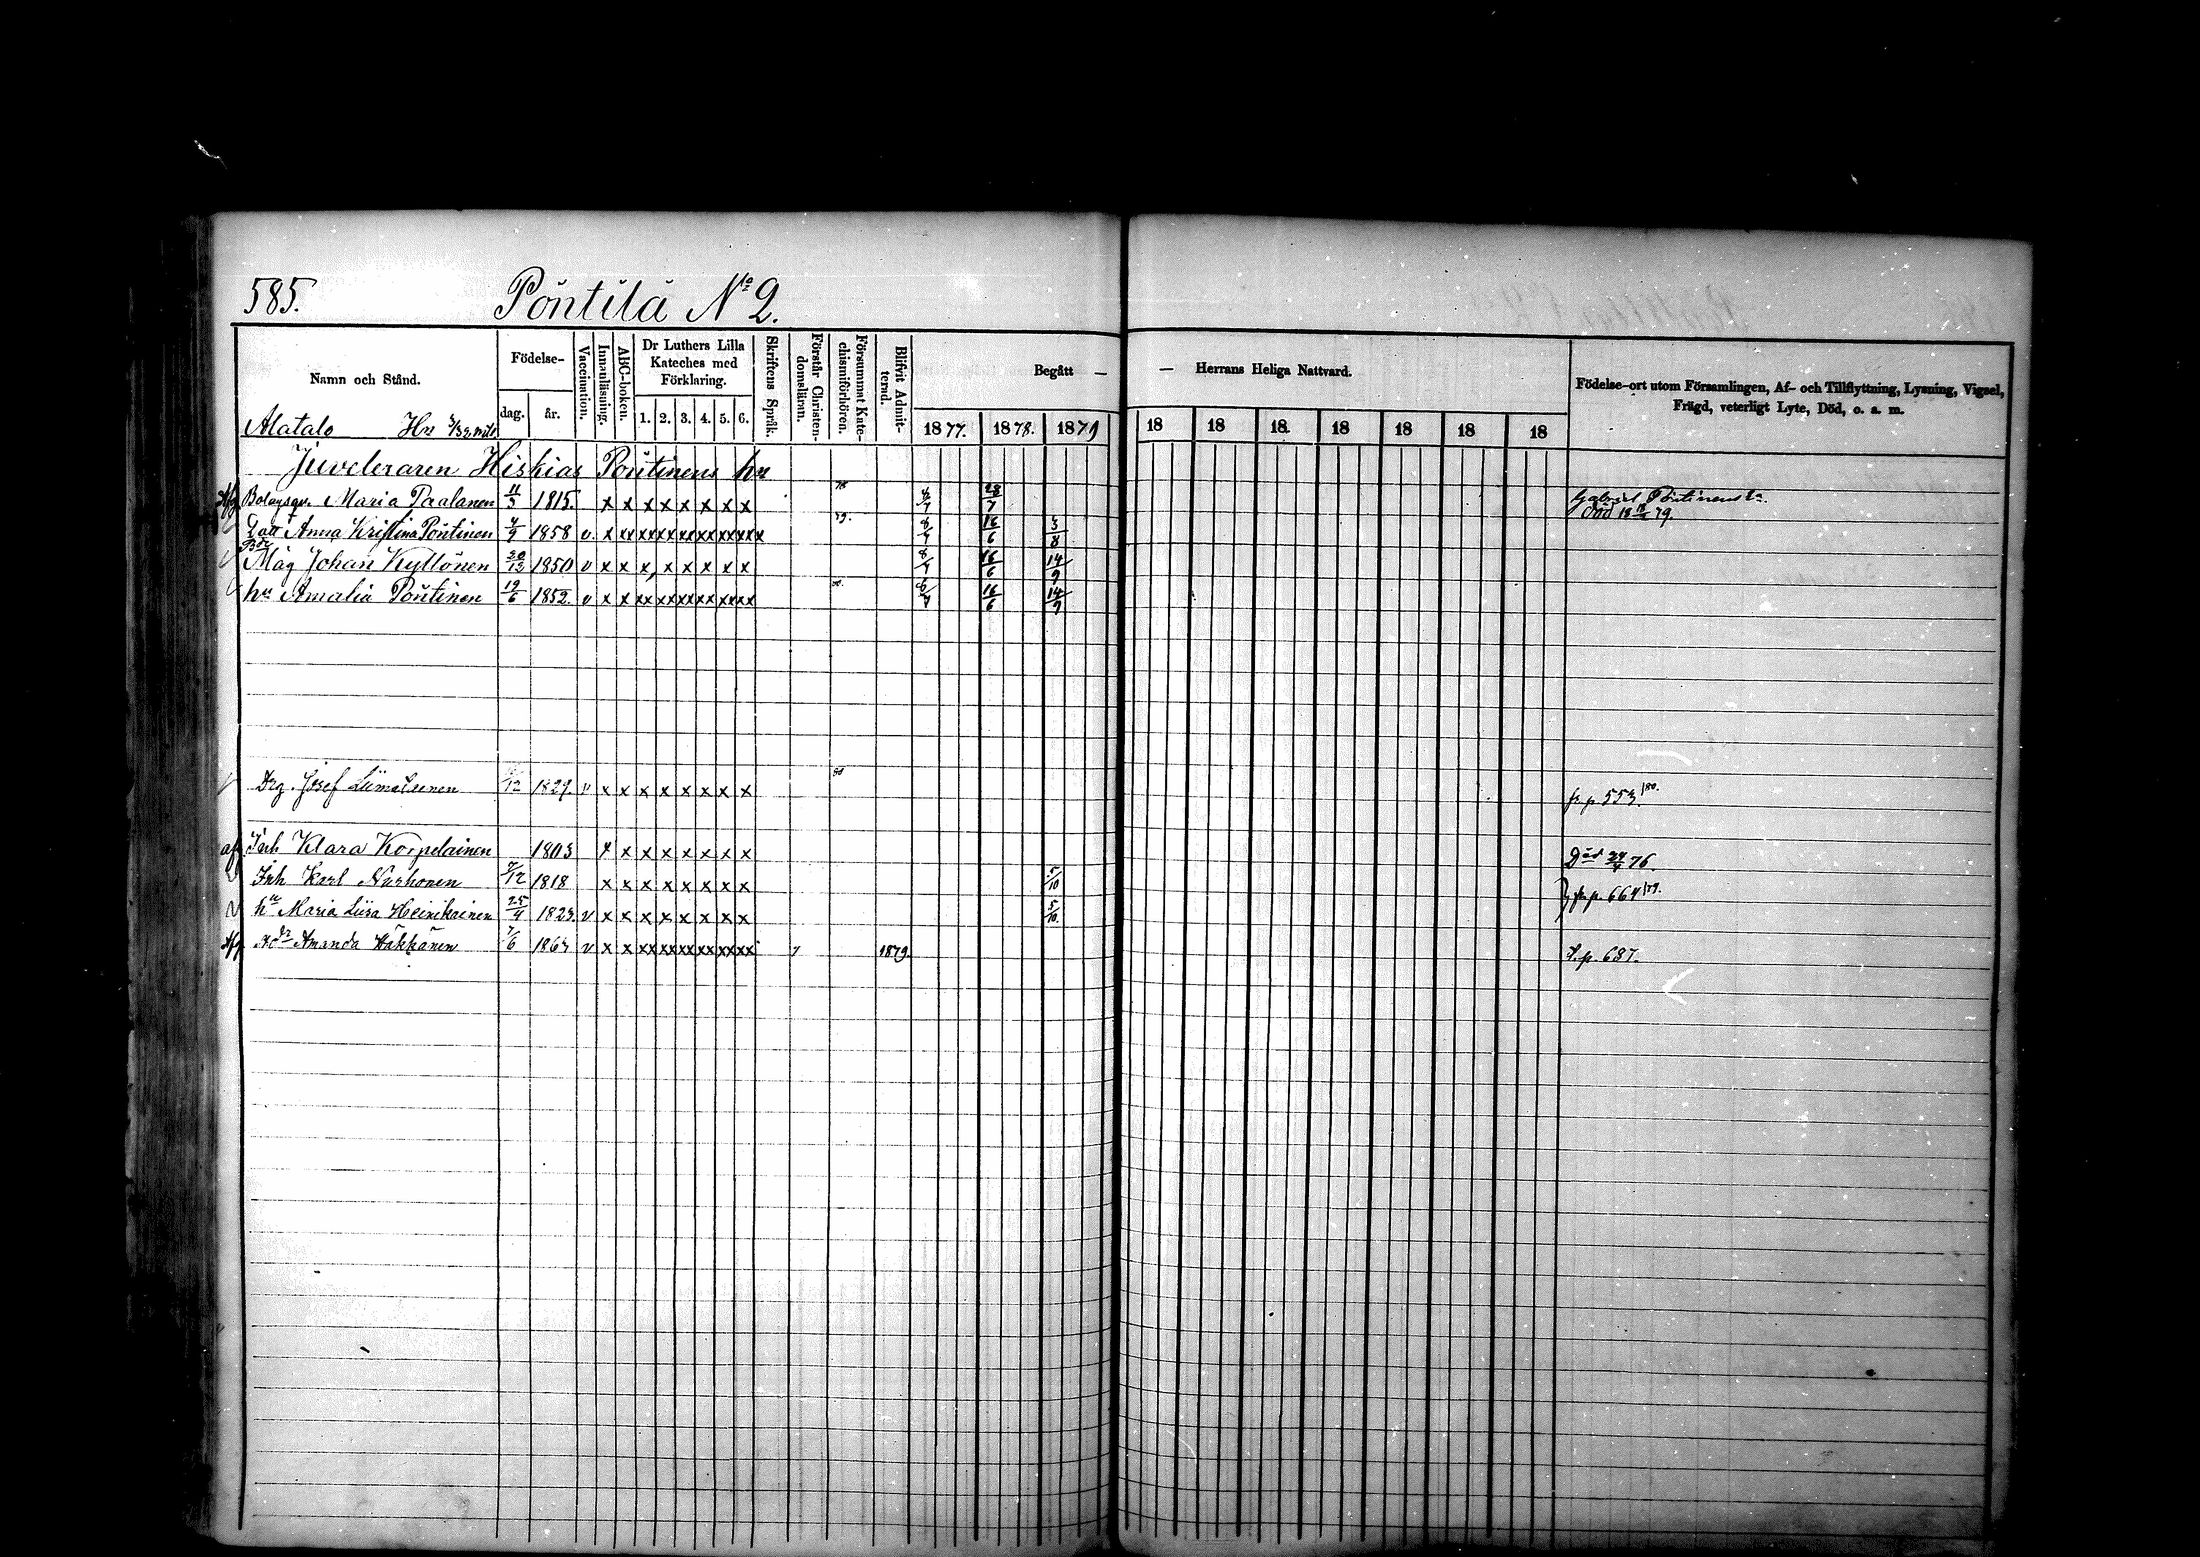 585. Pöntilä No 2.
Namn och Stånd.
Födelse-
dag. år.
Vaccination.
Innanläsning.
ABC-boken.
Dr Luthers Lilla
Kateches med
Förklaring.
1. 2. 3. 4. 5. 6.
Skriftens Språk.
Förstår Christen-
domsläran.
Försummat Kate-
chismiförhören.
Blifvit Admit-
terad.
Begått — — Herrans Heliga Nattvard.
1877. 1878. 1879 18 18 18 18 18 18 18
Födelse-ort utom Församlingen, Af- och Tillflyttning, Lysning, Vigsel,
Frägd, veterligt Lyte, Död, o. s. m.
Alatalo Hn
Juveleraren Hiskias Pöntinens hu
Afg Bolagsqv. Maria Paalanen 11/3 1815. x x x x x x x x 78 8/7 28/7 Gabriel Pöntinens
Död 18 79.
Dott Anna Kristina Pöntinen 4/9 1858 v. x xx xx xx xx xx xx xx 79. 8/7 16/6 3/8
Måg Johan Kyllönen 30/12 1850 v x x x x x x x x 8/7 16/6 14/9
hu Amalia Pöntinen 19/6 1852. v x x xx xx xx xx xx xx 8/7 16/6 14/9
Drg. Josef Liimatainen /12 1829. v x x x x x x x x 80 fr. p. 553. /80.
af Inh Klara Korpelainen 1803 x x x x x x x x Död 24 76.
Inh Karl Nurhonen /12 1818 x x x x x x x x 5/10 fr p. 664 /79.
hu Maria Liisa Heinikainen 25/4 1823. v x x x x x x x x 5/10.
Afg Amanda Häkkänen 7/6 1863 v x x xx xx xx xx xx xx 7 1879. t. p. 687.